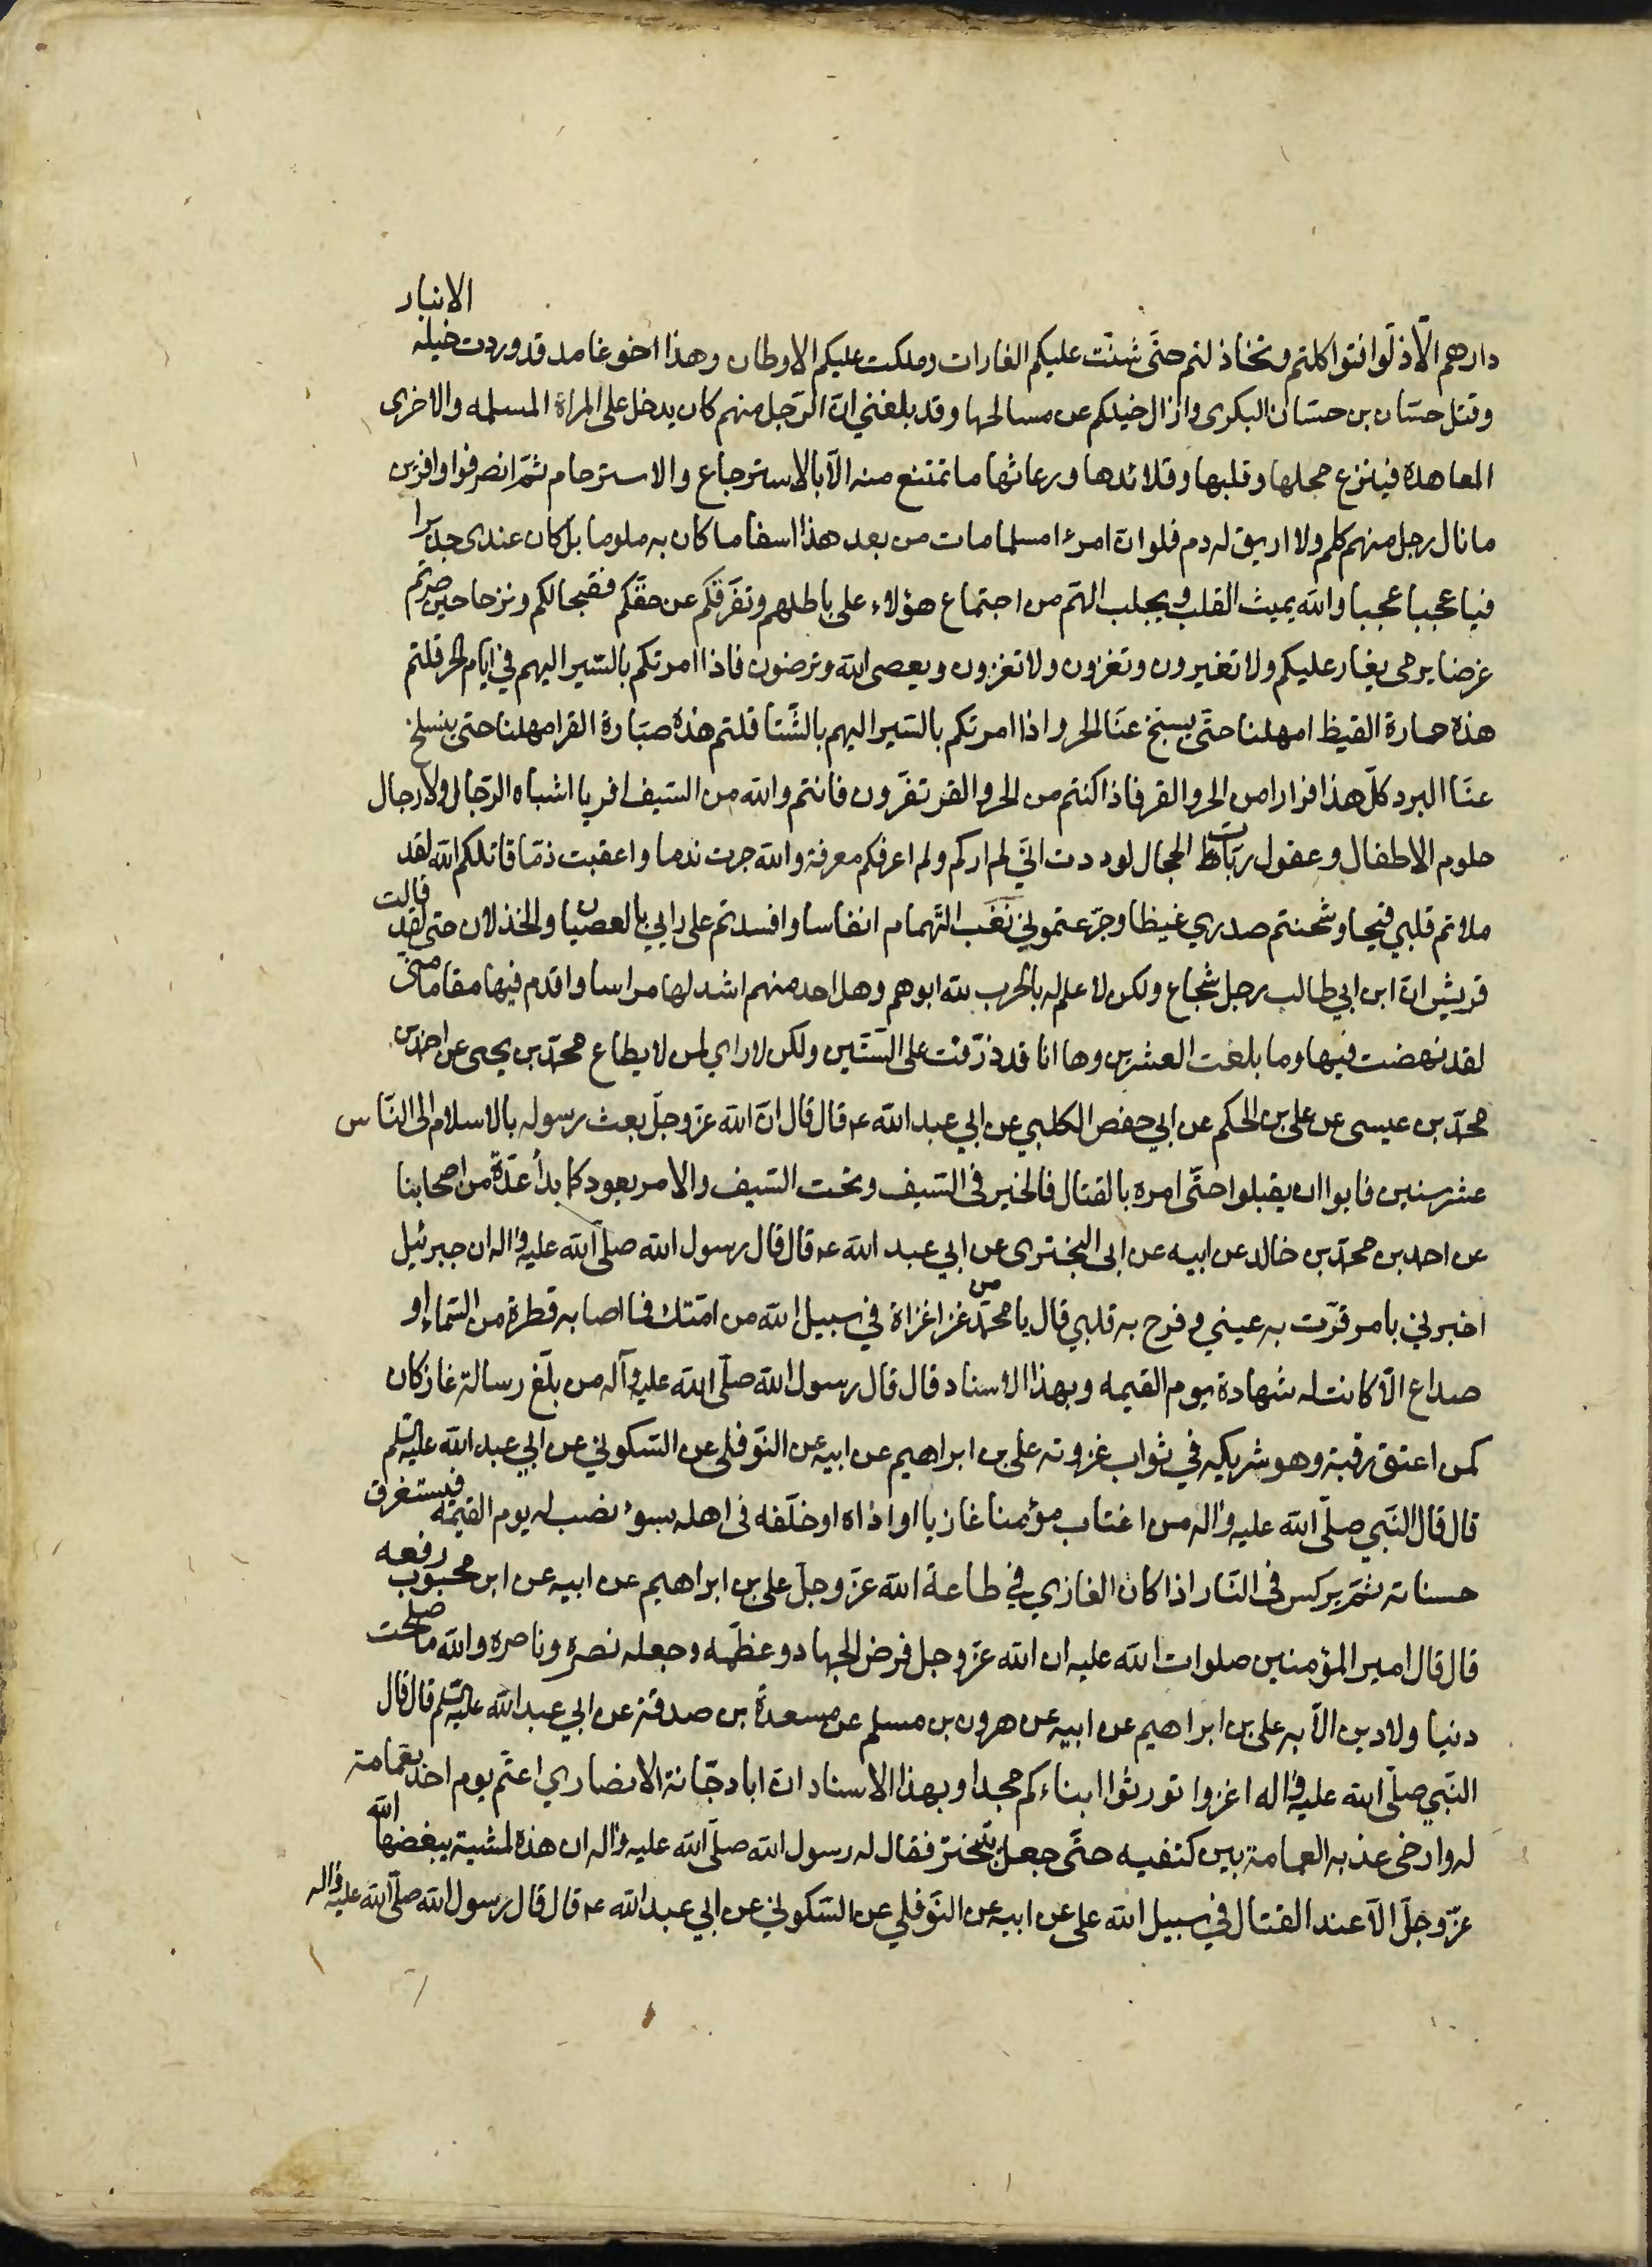 دارهم الّا ذلّوا فتواكلتم وتخاذلتم حتّى شنّت عليكم الغارات وملكت عليكم الاوطان وهذا اخو غامد قد وردت خيله الانبار
وقتل حسّان بن حسّان البكرى وازال خيلكم عن مسالحها وقد بلغني انّ الرّجل منهم كان يدخل على المراة المسلمه والاخرى
المعاهدة فينزع حجلها وقلبها وقلائدها ورعاثها ما تمتنع منه الّا بالاسترجاع والاسترحام ثمّ انصرفوا وافرين
ما نال رجل منهم كلم ولا اريق له دم فلو انّ امرءا مسلما مات من بعد هذا اسفا ما كان به ملوما بل كان عندى جديرا
فيا عجبا عجبا والله يميث القلب ويجلب الهّم من اجتماع هؤلاء على باطلهم وتفرّقكم عن حقّكم فقبحا لكم وترحا حين صرتم
غرضا يرمى يغار عليكم ولا تغيرون وتغزون ولا تغزون ويعصى الله وترضون فاذا امرتكم بالسّير اليهم في ايام الحر قلتم
هذه حمارة القيظ امهلنا حتّى يسبخ عنّا الحر واذا امرتكم بالسّير اليهم بالشّتا قلتم هذه صبّارة القر امهلنا حتى ينسلخ
عنّا البرد كلّ هذا فرارا من الحر والقر فاذا كنتم من الحر والقر تفرّون فانتم والله من السّيف افر يا اشباه الرّجال ولا رجال
حلوم الاطفال وعقول ربّات الحجال لوددت انّي لم اركم ولم اعرفكم معرفة والله جرت ندما واعقبت ذمّا قاتلكم الله لقد
ملاتم قلبي قيحا وشحنتم صدري غيظا وجرّعتموني نغب التّهمام انفاسا وافسدتم على رايي بالعصيان والخذلان حتى لقد قالت
قريش انّ ابن ابي طالب رجل شجاع ولكن لا علم له بالحرب لله ابوهم وهل احد منهم اشد لها مراسا واقدم فيها مقاما منّى
لقد نهضت فيها وما بلغت العشرين وها انا قد ذرّفت على السّتّين ولكن لا راي لمن لا يطاع محمّد بن يحيى عن احمد بن
محمّد بن عيسى عن على بن الحكم عن ابي حفص الكلبي عن ابي عبد الله ع قال قال انّ الله عزّ وجلّ بعث رسوله بالاسلام الى النّاس
عشر سنين فابوا ان يقبلوا حتّى امره بالقتال فالخير فى السّيف وتحت السّيف والامر يعود كما بدأ عدّة من اصحابنا
عن احمد بن محمّد بن خالد عن ابيه عن ابى البخترى عن ابي عبد الله ع قال قال رسول الله صلّى الله عليه واله ان جبرئيل
اخبرني بامر قرّت به عيني وفرح به قلبي قال يا محمّد من غزا غزاة في سبيل الله من امّتك فما اصابه قطرة من السّماء او
صداع الّا كانت له شهادة يوم القيمه وبهذا الاسناد قال قال رسول الله صلّى الله عليه وآله من بلّغ رسالة غاز كان
كمن اعتق رقبة وهو شريكه في ثواب غزوته على بن ابراهيم عن ابيه عن النّوفلى عن السّكوني عن ابي عبد الله عليه السّلم
قال قال النّبي صلّى الله عليه واله من اغتاب مؤمنا غازيا او اذاه او خلّفه فى اهله بسوء نصب له يوم القيمه فيستغرق
حسناته ثمّ يركس فى النّار اذا كان الغازي في طاعة الله عزّ وجلّ على بن ابراهيم عن ابيه عن ابن محبوب رفعه
قال قال امير المؤمنين صلوات الله عليه ان الله عزّ وجل فرض الجهاد وعظّمه وجعله نصره وناصره والله ما صلحت
دنيا ولا دين الّا به على بن ابراهيم عن ابيه عن هرون بن مسلم عن مسعدة بن صدقة عن ابي عبد الله عليه السّلم قال قال
النّبي صلّى الله عليه واله اغزوا تورثوا ابناءكم مجدا وبهذا الاسناد انّ ابا دجّانة الانصاري اعتمّ يوم احد بعمامة
له وارخى عذبه العمامة بين كتفيه حتّى جعل يتبختر فقال له رسول الله صلّى الله عليه واله ان هذه لمشية يبغضها الله
عزّ وجلّ الّا عند القتال في سبيل الله على عن ابيه عن النّوفلي عن السّكوني عن ابي عبد الله ع قال قال رسول الله صلّى الله عليه واله